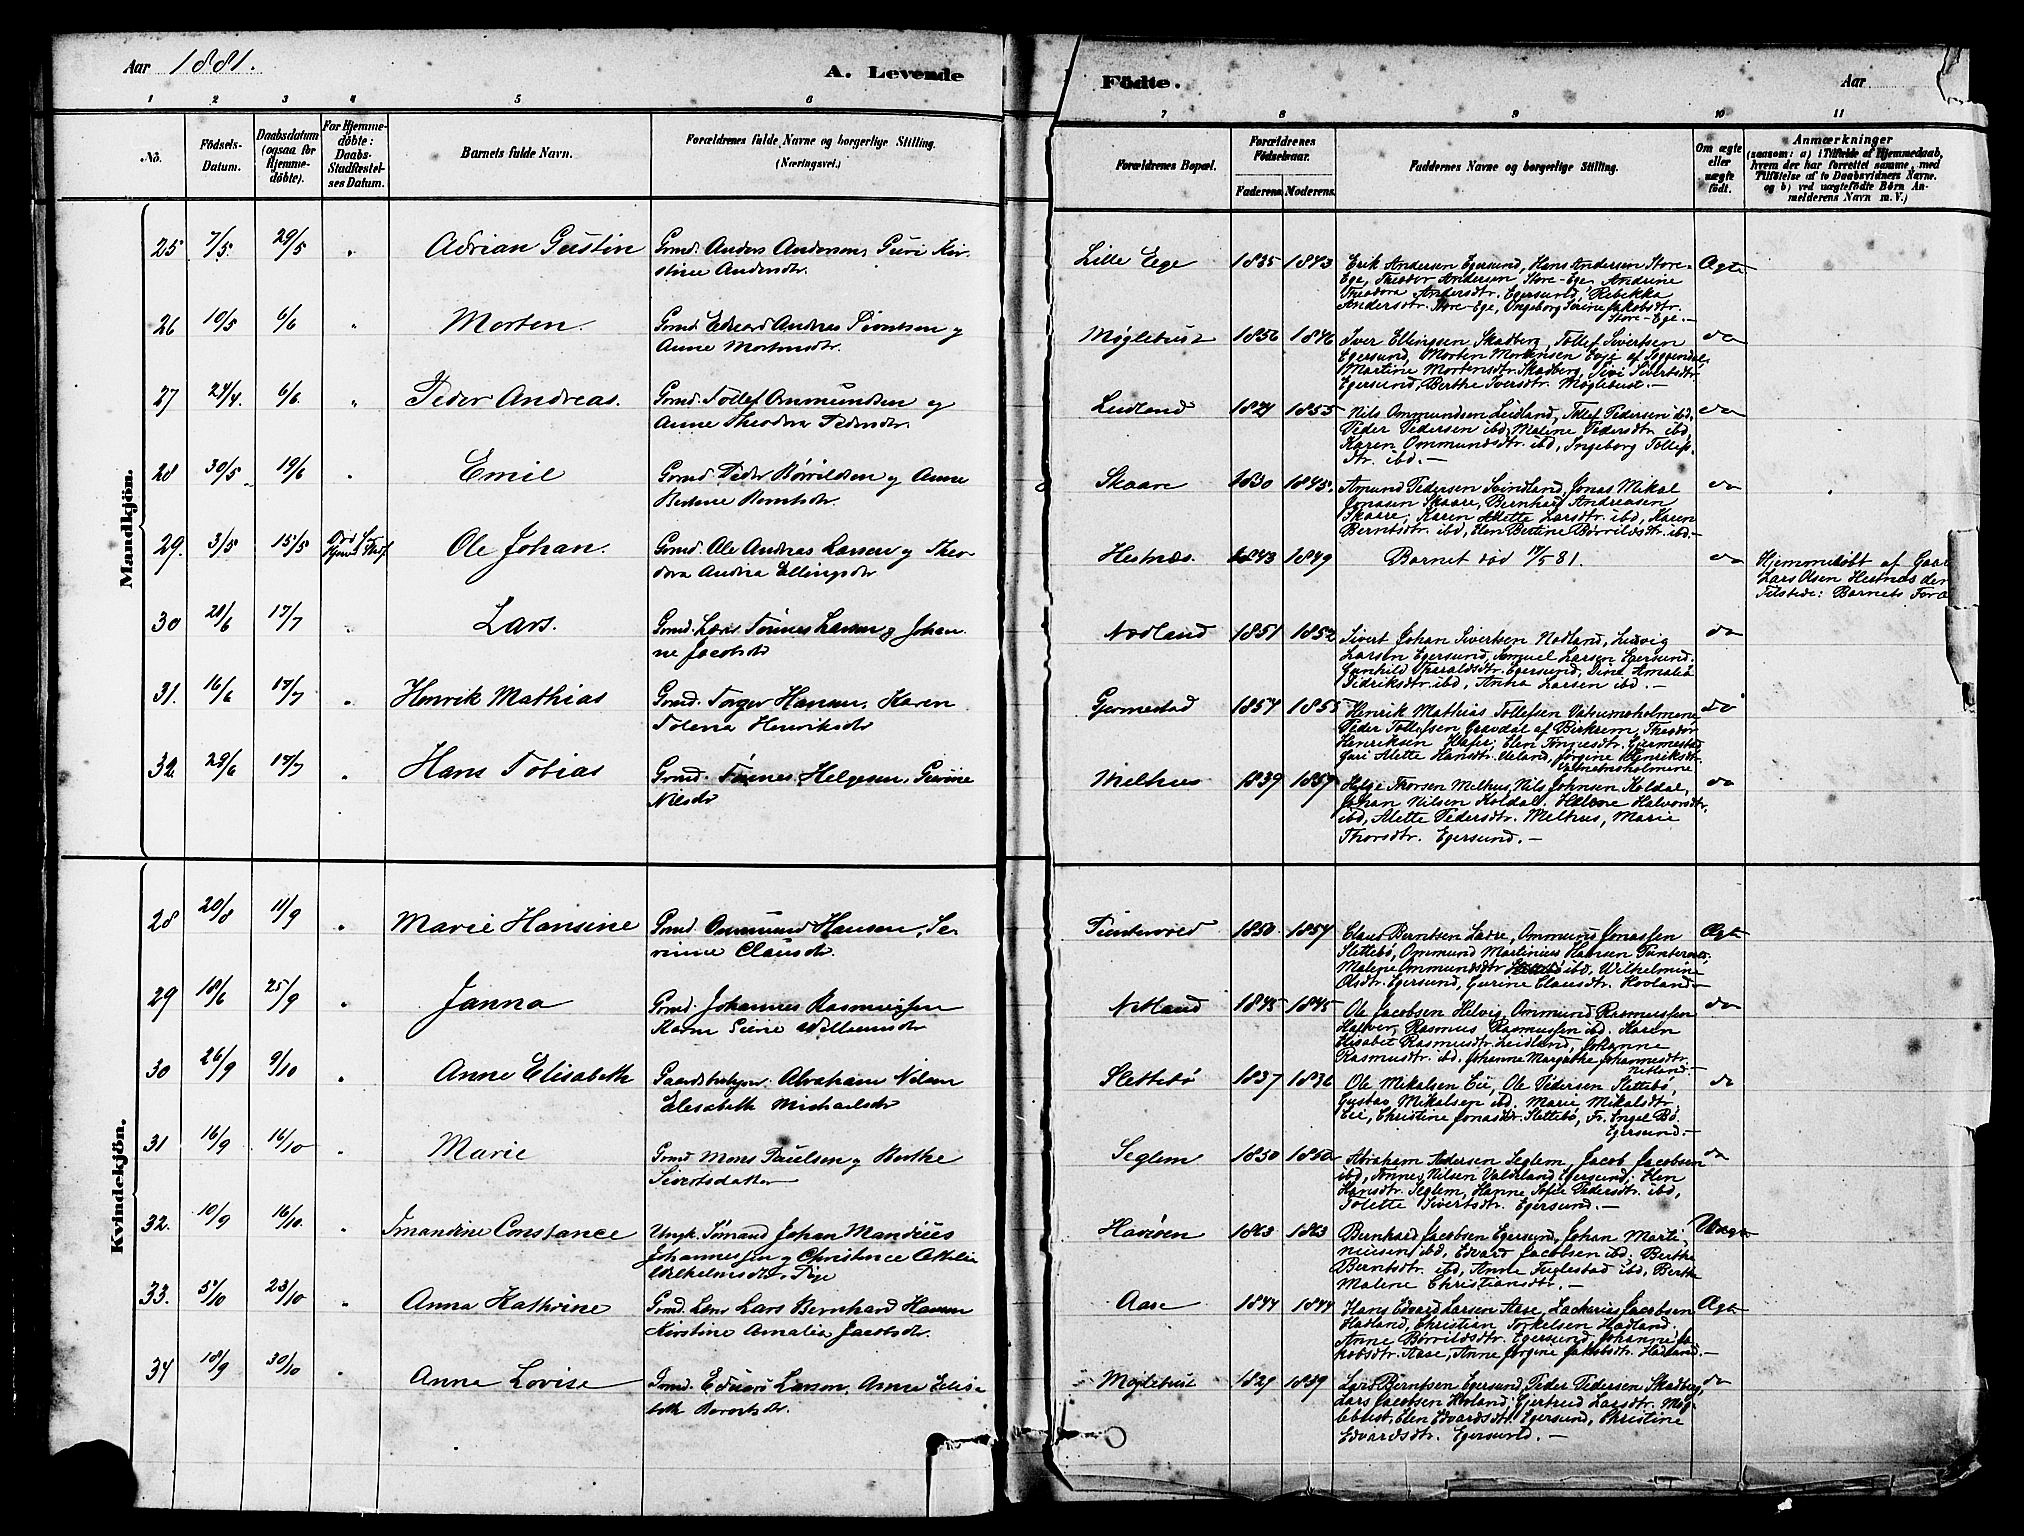 Aar 1881.
A. Levende
Födte.
Aar
1 2 3 4 5 6 7 8 9 10 11
No.
Födsels-
Datum.
Daabsdatum
(ogsaa for
Hjemme-
döbte).
For Hjemme-
döbte:
Daabs-
Stadfæstel-
ses Datum.
Barnets fulde Navn.
Forældrenes fulde Navne og borgerlige Stilling.
(Næringsvei.)
Forældrenes Bopæl.
Forældrenes
Födselsaar.
Faderens. Moderens.
Faddernes Navne og borgerlige Stilling.
Om ægte
eller
uægte
födt.
Anmærkninger
(saasom: a) i Tilfælde af Hjemmedaab,
hvem der har forrettet samme, med
Tilföielse af to Daabsvidners Navne.
og b) ved uægtefödte Börn An-
melderens Navn m. V.)
Mandkjön.
25 7/5 29/5 " Adrian Gustin Grmd. Anders Andersen, Guri Kir-
stine Andersdtr.
Lille Ege 1835 1843 Erik Andersen Egersund, Hans Andersen Store-
Ege, Theodor Andersen Store-Ege, Andrine
Theodora Andersdtr. Egersund, Rebekka
Andersdtr. Store-Ege, Ingeborg Serine Jakobsdtr.
Store-Ege.-
Ægte
26 10/5 6/6 " Morten. Grmd. Edvard Andreas Torntsen og
Anne Mortensdtr.
Møglebust 1856 1846 Iver Ellingsen Skadberg, Tollef Sivertsen
Egersund, Morten Mortensen Eeje af Soggendal,
Martine Mortensdtr. Skadberg, Sivi Sivertsdtr.
Egersund, Berthe Iversdtr. Møglebust.-
do
27 24/4 6/6 " Peder Andreas. Grmd. Tollef Ommundsen og
Anne Theodora Pedersdtr.
Leidland 1821 1855 Nils Ommundsen Leidland, Tollef Pedersen ibd,
Peder Pedersen ibd, Malene Pedersdtr. ibd,
Karen Ommundsdtr. ibd, Ingeborg Tollefs-
dtr. ibd.-
do
28 30/5 19/6 " Emil Grmd Peder Børrildsen og Anne
Bertine Berntsdtr.
Skaare 1830 1845. Amund Pedersen Svindland, Jonas Mikal
Jonasen Skaare, Bernhard Andreasen
Skaare, Karen Alette Larsdtr. ibd, Karen
Berntsdtr. ibd, Elen Bertine Børrildsdtr. ibd.-
do
29. 3/5 15/5 Ole Johan. Grmd. Ole Andreas Larsen og Theo-
dora Andrea Ellingsdtr
Hestnæs. 1843 1849 Barnet död 17/5 81.
do Hjemmedöbt af
Lars Olsen Hestnæs der
Tilstede: Barnets
30 20/6 17/7 " Lars. Grmd. Lars Tönnes Larsen og Johan-
ne Jacobsdtr
Nodland 1851 1852 Sivert Johan Sivertsen Nodland, Ludvig
Larsen Egersund, Samuel Larsen Egersund.
Gunhild Tharaldsdtr. Egersund, Dine Amalia
Pedriksdtr. ibd, Anna Larsen ibd.-
do
31. 16/6 17/7 " Henrik Mathias Grmd. Torger Hansen, Karen
Tolena Henriksdtr
Gjermestad 1857 1855 Henrik Mathias Tollefsen Vatnemoholmene
Peder Tollefsen Gravdal af Birkrem, Theodor
Henriksen Hafsø, Elen Tönnesdtr. Gjermestad
Guri Alette Hansdtr. Ueland, Jörgine Henriksdtr.
Vatnemoholmene
do
32. 29/6 17/7 " Hans Tobias Grmd. Tönnes Helgesen, Gurine
Nilsdtr
Melhus 1839 1857 Helge Thorsen Melhus, Nils Johnsen Koldal,
Johan Nilsen Koldal, Helene Halvorsdtr.
ibd, Alette Pedersdtr. Melhus, Marie
Thorsdtr. Egersund.-
do
Kvindekjön.
28 20/8 11/9 " Marie Hansine Grmd. Ommund Hansen, Se-
verine Clausdtr.
1850 1857 Claus Berntsen Ladre, Ommund Jonassen
Slettebö, Ommund Martinius Hansen
Malene Ommundsdtr. ibd, Wilhelmine
Olsdtr. Egersund, Gurine Clausdtr. Hovland.-
Ægte
29 18/6 25/9 " Janna Grmd. Johannes Rasmussen
Karen Serine Willumsdtr
Netland 1845 1845 Ole Jacobsen Helvig, Ommund Rasmussen
Halver, Rasmus Rasmussen ibd. Karen
Elisabet Rasmusdtr. Leidland, Johanne
Rasmusdtr. ibd. Johanne Margrethe Johannesdtr.
Netland.-
do
30 26/9 9/10 " Anne Elisabeth Gaardbruger. Abraham Nilsen
Elisabeth Michaelsdtr
Slettebö 1837 1836 Ole Mikalsen Eie, Ole Pedersen Slettebö,
Gustav Mikalsen ibd. Marie Mikalsdtr
Eie, Christine Jonasdtr. Slettebö, Fr. Engel Bö.
Egersund.-
do
31 16/9 16/10 " Marie Grmd Mons Paulsen og Berthe
Sivertsdatter
Seglem 1850 1850 Abraham Andersen Seglem, Jacob Jacobsen
ibd, Tönnes Nilsen Vadland Egersund, Elen
Hansdtr. Seglem, Hanne Sofie Pedersdtr. ibd,
Tolette Sivertsdtr. Egersund.-
do
32. 10/9 16/10. " Imandrine Constance Ungk. Sömand Johan Mandrius
Johannessen og Christence Othelie
Wilhelmsdtr, Pige
Havsöen 1863 1863 Bernhard Jacobsen Egersund, Johan Marti-
niussen ibd, Edvard Jacobsen ibd. Berthe
Berntsdtr. ibd, Anne Fuglestad ibd, Berthe
Malene Christiansdtr.-
Uægte
33. 5/10 23/10 " Anna Kathrine Grmd. Lars Bernhard Hansen
Kirstine Amalia Jacobsdtr.
Aase 1844 1844 Hans Edvard Larsen Aase, Zacharias Jacobsen
Hadland, Christian Torkelsen Hadland.
Anne Børrildsdtr. Egersund, Johanne Ja-
kobsdtr. Aase, Anne Jorgine Jakobsdtr. Hadland.-
Ægte
34 18/9 30/10 " Anna Lovise Grmd. Edvard Larsen, Anne Elisa-
beth Berentsdtr.
Møglebust 1829 1839 Lars Berntsen Egersund, Peder Pedersen Skadberg,
Lars Jacobsen Hovland, Gjertrud Larsdtr. Møg-
lebust, Elen Edvardsdtr. Egersund, Christine
Edvardsdtr. Egersund.-
do